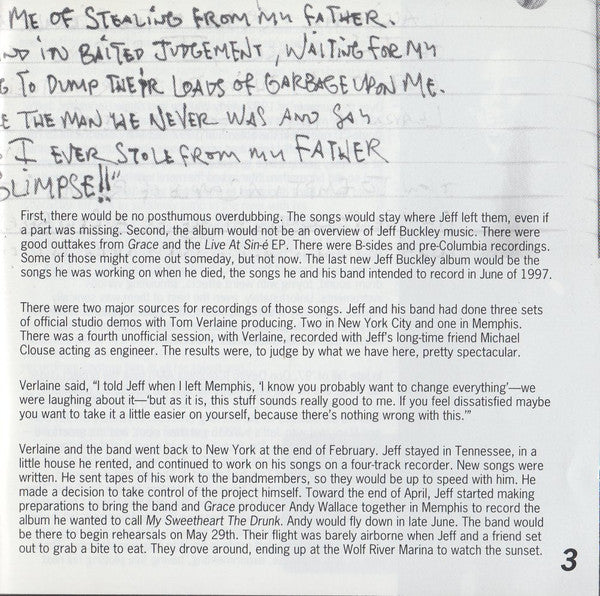 ME OF STEALING FROM MY FATHER.
IN BAITED JUDGEMENT, WAITING FOR MY
TO DUMP THEIR LOADS OF GARBAGE UPON ME.
THE MAN HE NEVER WAS AND SAY
I EVER STOLE FROM MY FATHER
GLIMPSE!!"
First, there would be no posthumous overdubbing. The songs would stay where Jeff left them, even if
a part was missing. Second, the album would not be an overview of Jeff Buckley music. There were
good outtakes from Grace and the Live At Sin-é EP. There were B-sides and pre-Columbia recordings.
Some of those might come out someday, but not now. The last new Jeff Buckley album would be the
songs he was working on when he died, the songs he and his band intended to record in June of 1997.
There were two major sources for recordings of those songs. Jeff and his band had done three sets
of official studio demos with Tom Verlaine producing. Two in New York City and one in Memphis.
There was a fourth unofficial session, with Verlaine, recorded with Jeff's long-time friend Michael
Clouse acting as engineer. The results were, to judge by what we have here, pretty spectacular.
Verlaine said, "I told Jeff when I left Memphis, 'I know you probably want to change everything'—we
were laughing about it—'but as it is, this stuff sounds really good to me. If you feel dissatisfied maybe
you want to take it a little easier on yourself, because there's nothing wrong with this.'"
Verlaine and the band went back to New York at the end of February. Jeff stayed in Tennessee, in a
little house he rented, and continued to work on his songs on a four-track recorder. New songs were
written. He sent tapes of his work to the bandmembers, so they would be up to speed with him. He
made a decision to take control of the project himself. Toward the end of April, Jeff started making
preparations to bring the band and Grace producer Andy Wallace together in Memphis to record the
album he wanted to call My Sweetheart The Drunk. Andy would fly down in late June. The band would
be there to begin rehearsals on May 29th. Their flight was barely airborne when Jeff and a friend set
out to grab a bite to eat. They drove around, ending up at the Wolf River Marina to watch the sunset.
3